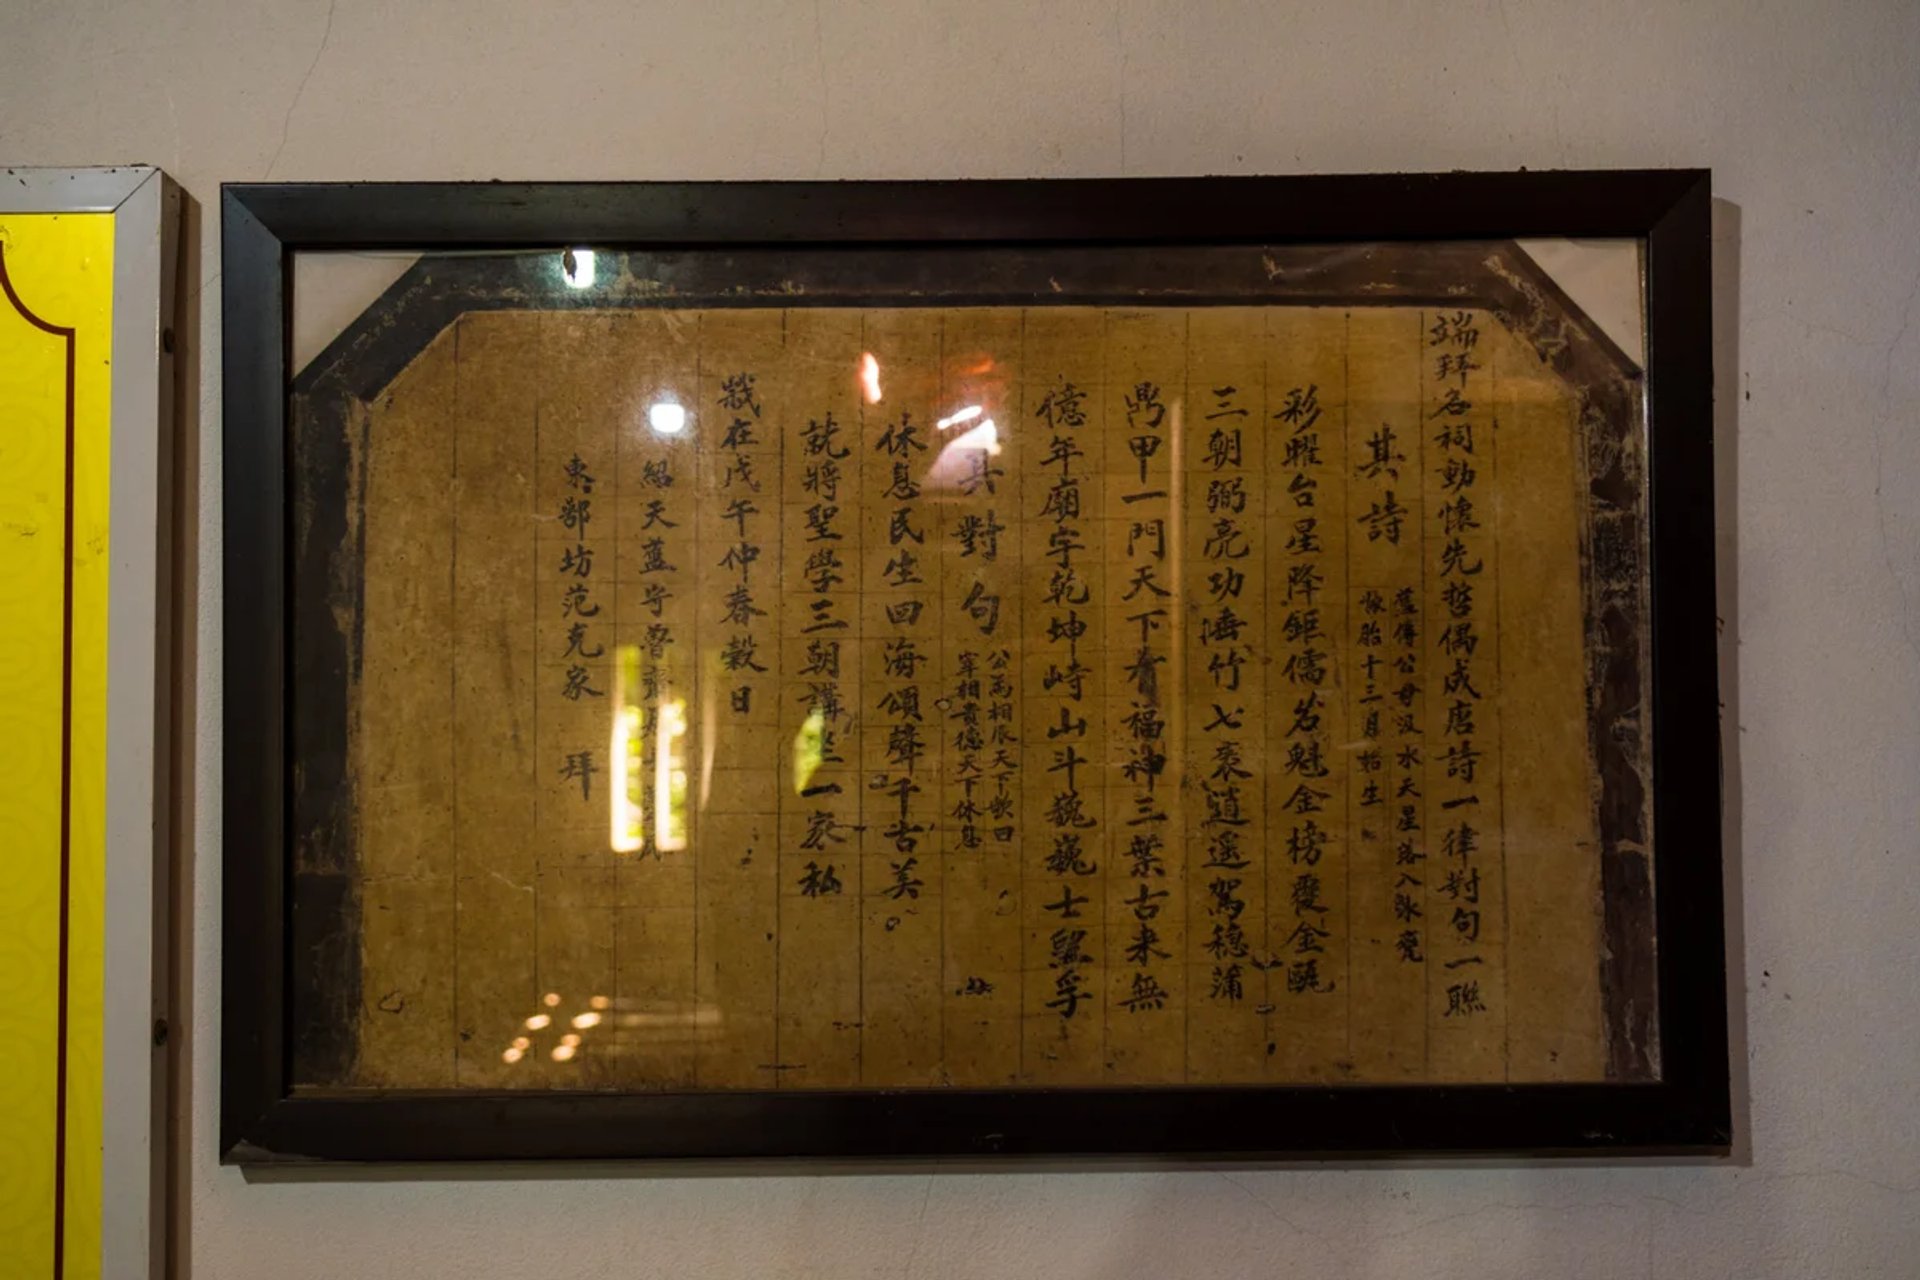 端拜名祠動懷先哲偶成唐詩一律對句一聯
其詩
舊傳公母汲水天星落入水甕
懷胎十三月始生
彩耀台星降鉅儒名魁金榜覆金甌
三朝弼亮功垂竹七袠逍遥駕穩蒲
鼎甲一門天下有福神三葉古来無
億年廟宇乾坤峙山斗巍巍士望孚
其對句
公為相辰天下歌曰
宰相貴德天下休息
休息民生四海頌聲千古美
就將聖學三朝講一家私
戲在戊午仲春穀日
紹天藍守魯齋
東鄂坊范克家 拜